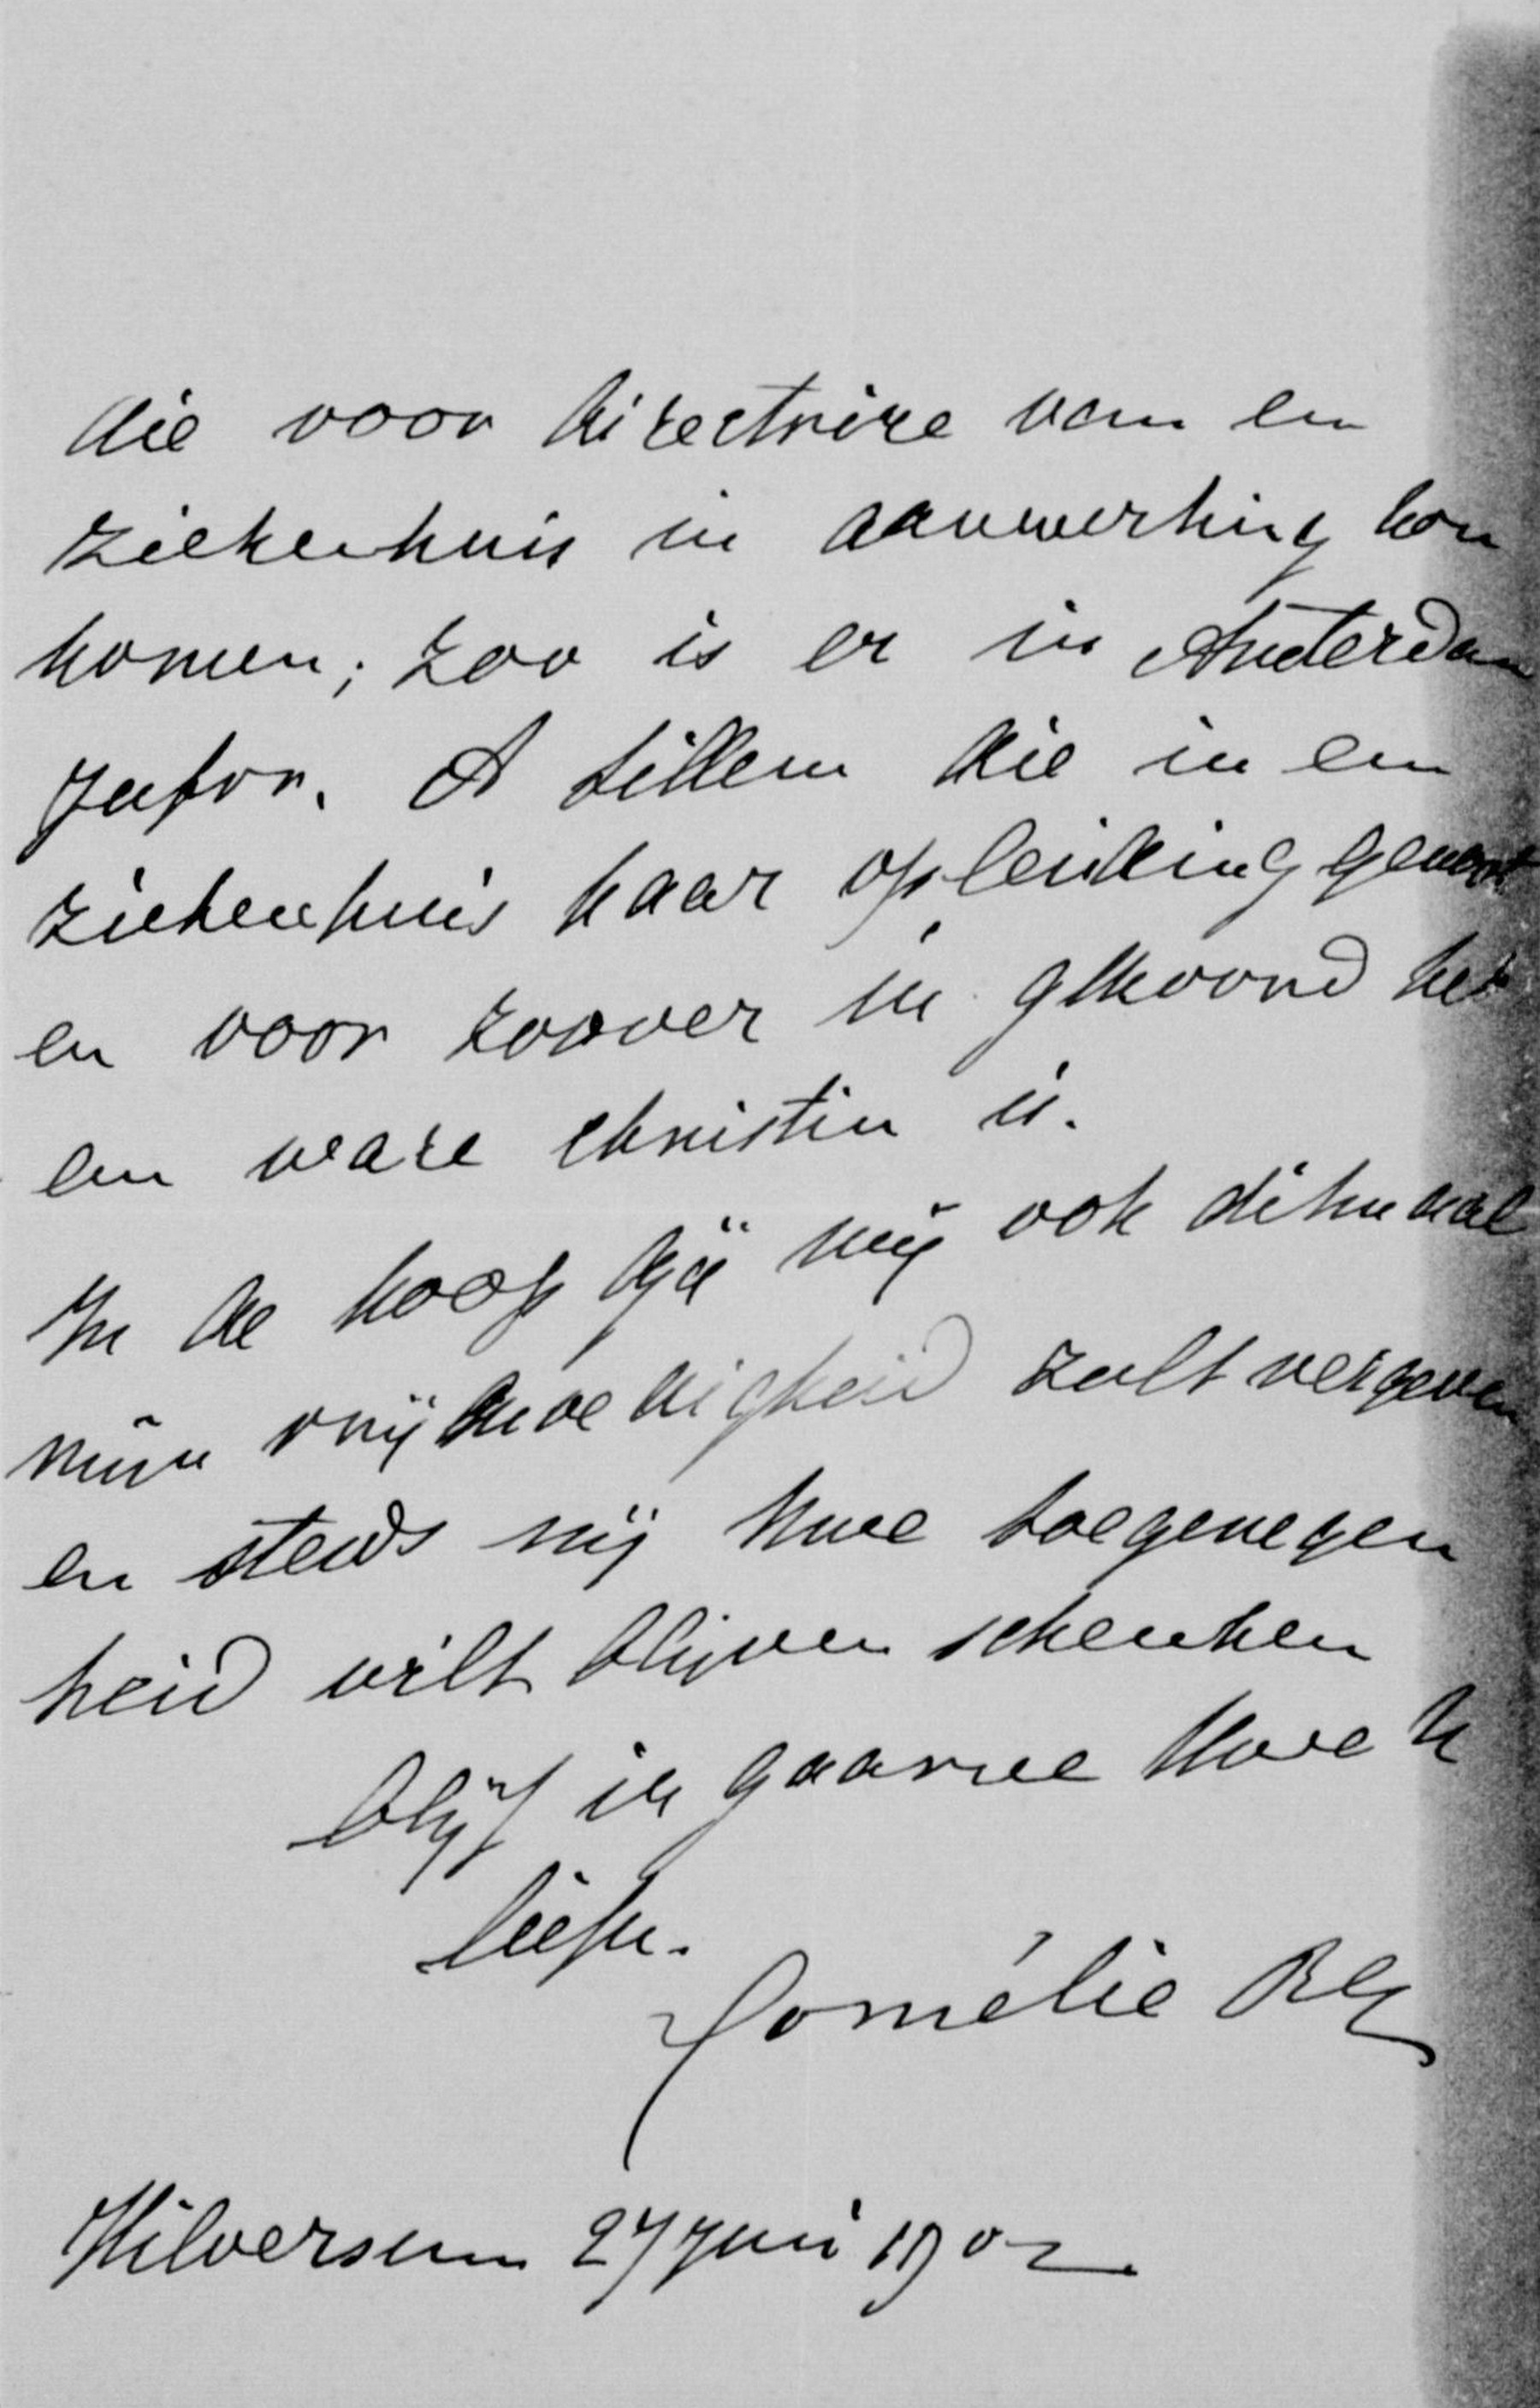 die voor directrice van een
ziekenhuis in aanmerking kon
komen; zoo is er in Amsterdam
Jufvr. A Sillem die in een
ziekenhuis haar opleiding genoot
en voor zoover ik gehoord heb
een ware christin is.
In de hoop gij mij ook ditmaal
mijn vrijmoedigheid zult vergeven
en steeds mij Uwe toegenegen
heid wilt blijven schenken
blijf ik gaarne Uwe
liefh.
Cornélie
Hilversum 27 Juni 1902